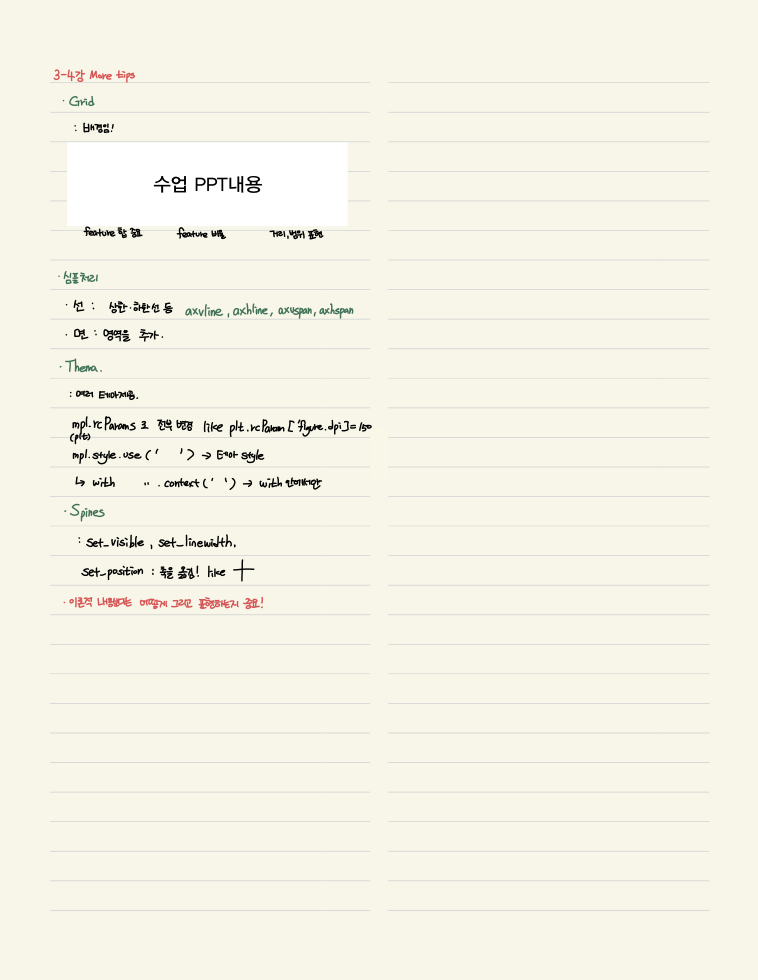 3-4강 More tips
· Grid
: 배경임!
수업 PPT내용
feature 합 중요 feature 비율 거리, 범위 표현
· 심플처리
· 선 : 상한·하한선 등 axvline, axhline, axvspan, axhspan
· 면 : 영역을 추가.
· Thema.
: 여러 테마제공.
mpl.rcParams 로 전부 변경 like plt.rcParam['figure.dpi]=150
(plt)
mpl.style.use(' ') → 테마 style
↳ with 〃 .context(' ') → with 안에서만
· Spines
: set_visible, set_linewidth.
set_position : 축을 옮김! like
· 이론적 내용보다는 어떻게 그리고 표현하는지 중요!